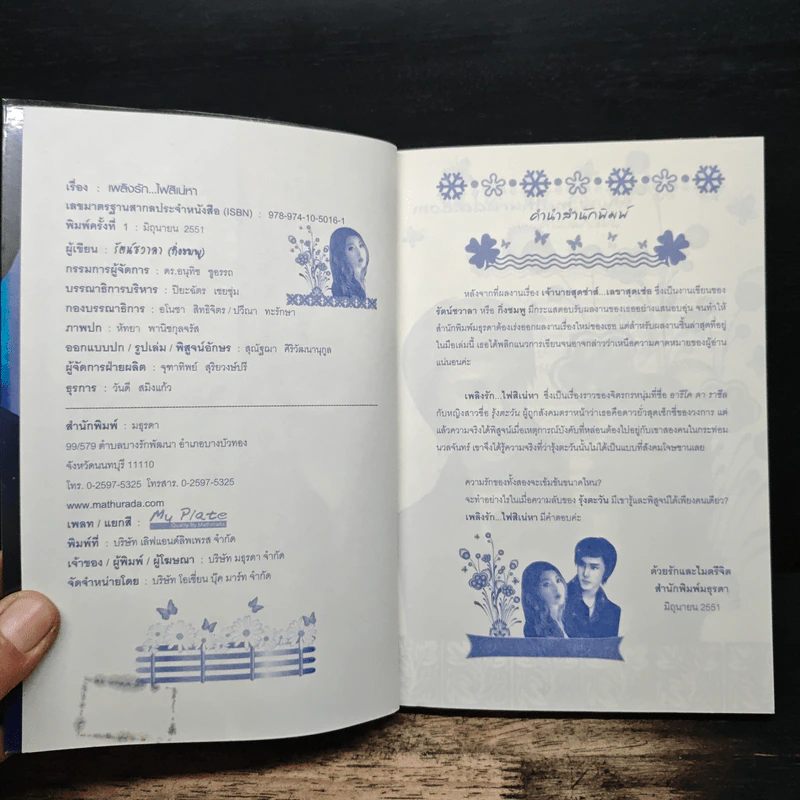 เรื่อง : เพลิงรัก...ไฟสิเน่หา
เลขมาตรฐานสากลประจำหนังสือ (ISBN) : 978-974-10-5016-1
พิมพ์ครั้งที่ 1 : มิถุนายน 2551
ผู้เขียน : รัตน์ชวาลา (กิ่งชมพู)
กรรมการผู้จัดการ : ดร.อนุทิช ชูอรรถ
บรรณาธิการบริหาร : ปิยะฉัตร เชยชุ่ม
กองบรรณาธิการ : อโนชา สิทธิจิตร / ปวีณา ทะรักษา
ภาพปก : หัทยา พานิชกุลจรัส
ออกแบบปก / รูปเล่ม / พิสูจน์อักษร : สุณัฐฌา ศิริวัฒนานุกูล
ผู้จัดการฝ่ายผลิต : จุฑาทิพย์ สุริยวงษ์ปรี
ธุรการ : วันดี สมิงแก้ว
สำนักพิมพ์ : มธุรดา
99/579 ตำบลบางรักพัฒนา อำเภอบางบัวทอง
จังหวัดนนทบุรี 11110
โทร. 0-2597-5325 โทรสาร. 0-2597-5325
www.mathurada.com
เพลท / แยกสี : My Plate
Quality By Mathurada
พิมพ์ที่ : บริษัท เลิฟแอนด์ลิพเพรส จำกัด
เจ้าของ / ผู้พิมพ์ / ผู้โฆษณา : บริษัท มธุรดา จำกัด
จัดจำหน่ายโดย : บริษัท โอเชี่ยน บุ๊ค มาร์ท จำกัด
คำนำสำนักพิมพ์
หลังจากที่ผลงานเรื่อง เจ้านายสุดซ่าส์...เลขาสุดเซ่อ ซึ่งเป็นงานเขียนของ
รัตน์ชวาลา หรือ กิ่งชมพู มีกระแสตอบรับผลงานของเธออย่างแสนอบอุ่น จนทำให้
สำนักพิมพ์มธุรดาต้องเร่งออกผลงานเรื่องใหม่ของเธอ แต่สำหรับผลงานชิ้นล่าสุดที่อยู่
ในมือเล่มนี้ เธอได้พลิกแนวการเขียนจนอาจกล่าวว่าเหนือความคาดหมายของผู้อ่าน
แน่นอนค่ะ
เพลิงรัก...ไฟสิเน่หา ซึ่งเป็นเรื่องราวของจิตรกรหนุ่มที่ชื่อ อาริโค ดา ราซีล
กับหญิงสาวชื่อ รุ้งตะวัน ผู้ถูกสังคมตราหน้าว่าเธอคือดาวยั่วสุดเซ็กซี่ของวงการ แต่
แล้วความจริงได้พิสูจน์เมื่อเหตุการณ์บังคับที่หล่อนต้องไปอยู่กับเขาสองคนในกระท่อม
นวลจันทร์ เขาจึงได้รู้ความจริงที่ว่ารุ้งตะวันนั้นไม่ได้เป็นแบบที่สังคมโจษขานเลย
ความรักของทั้งสองจะเข้มข้นขนาดไหน?
จะทำอย่างไรในเมื่อความลับของ รุ้งตะวัน มีเขารู้และพิสูจน์ได้เพียงคนเดียว?
เพลิงรัก...ไฟสิเน่หา มีคำตอบค่ะ
ด้วยรักและไมตรีจิต
สำนักพิมพ์มธุรดา
มิถุนายน 2551